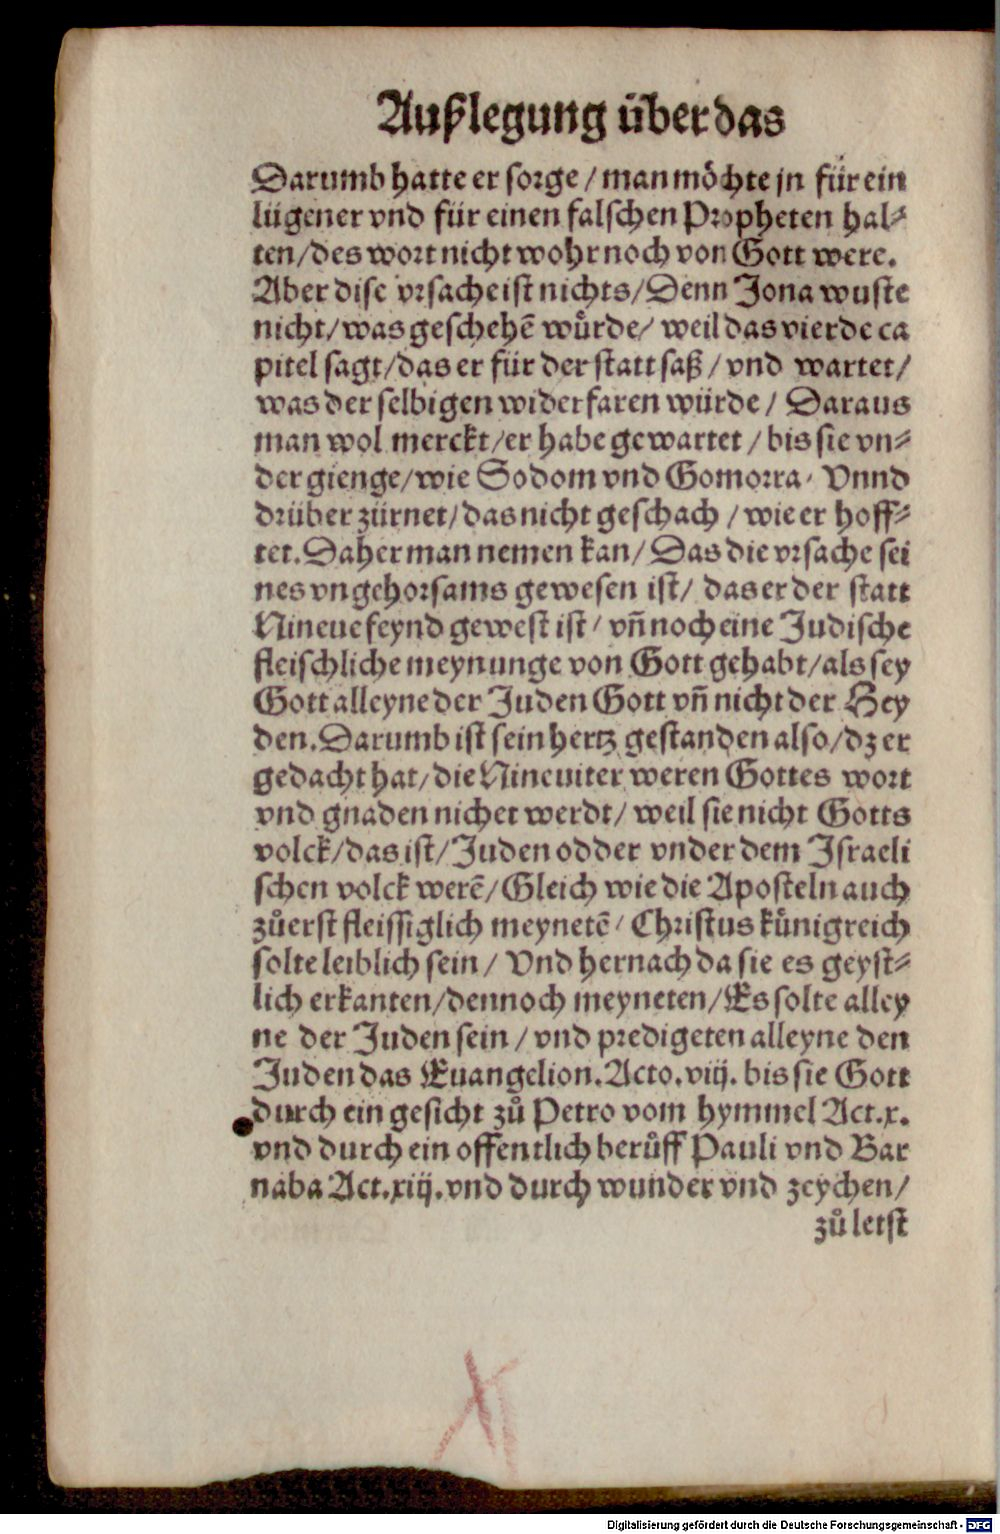 Außlegung über das
Darumb hatte er sorge / man möchte jn für ein
lügener vnd für einen falschen Propheten hal⸗
ten/des wort nicht wohr noch von Gott were.
Aber dise vrsache ist nichts/Denn Jona wuste
nicht/was geschehẽ wůrde/ weil das vierde ca
pitel sagt/das er für der statt saß / vnd wartet/
was der selbigen widerfaren würde / Daraus
man wol merckt/er habe gewartet / bis sie vn⸗
der gienge/wie Sodom vnd Gomorra/ Vnnd
drüber zürnet/das nicht geschach / wie er hoff⸗
tet. Daher man nemen kan/ Das die vrsache sei
nes vngehorsams gewesen ist/ das er der statt
Nineue feynd gewest ist / vñ noch eine Judische
fleischliche meynunge von Gott gehabt/als sey
Gott alleyne der Juden Gott vñ nicht der Hey
den. Darumb ist sein hertz gestanden also/dz er
gedacht hat/die Nineuiter weren Gottes wort
vnd gnaden nichet werdt/ weil sie nicht Gotts
volck/das ist/Juden odder vnder dem Israeli
schen volck werẽ/Gleich wie die Aposteln auch
zůerst fleissiglich meynetẽ/ Christus künigreich
solte leiblich sein / Vnd hernach da sie es geyst⸗
lich erkanten/dennoch meyneten/Es solte alley
ne der Juden sein / vnd predigeten alleyne den
Juden das Euangelion. Acto. viij. bis sie Gott
durch ein gesicht zů Petro vom hymmel Act. x.
vnd durch ein offentlich berůff Pauli vnd Bar
naba Act. xiij. vnd durch wunder vnd zeychen/
zů letst
Digitalisierung gefördert durch die Deutsche Forschungsgemeinschaft - DFG